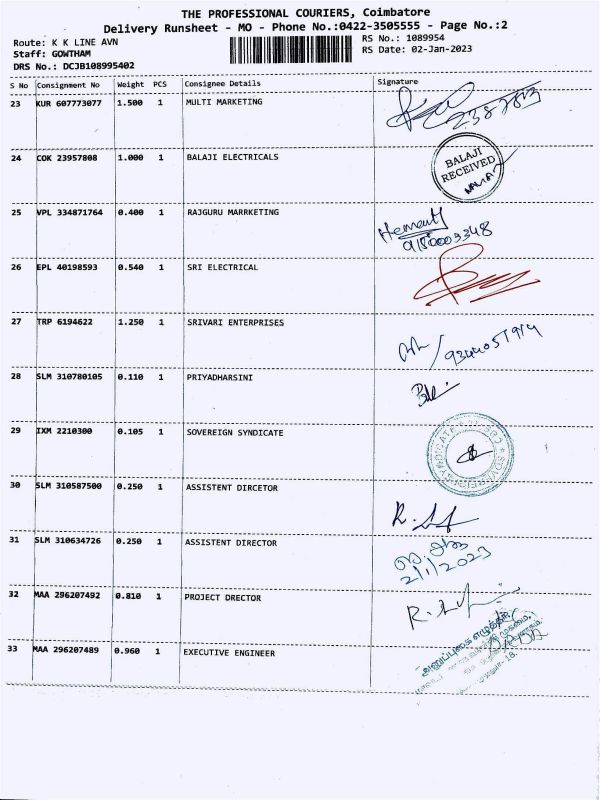 THE PROFESSIONAL COURIERS, Coimbatore
Delivery Runsheet - MO - Phone No.:0422-3505555 - Page No.:2
Route: K K LINE AVN
RS No.: 1089954
Staff: GOWTHAM
RS Date: 02-Jan-2023
DRS No.: DCJB108995402
S No Consignment No Weight PCS Consignee Details Signature
23 KUR 607773077 1.500 1 MULTI MARKETING
24 COK 23957808 1.000 1 BALAJI ELECTRICALS
BALAJI
RECEIVED
25 VPL 334871764 0.400 1 RAJGURU MARRKETING
Hemant
26 EPL 40198593 0.540 1 SRI ELECTRICAL
27 TRP 6194622 1.250 1 SRIVARI ENTERPRISES
28 SLM 310780105 0.110 1 PRIYADHARSINI
29 IXM 2210300 0.105 1 SOVEREIGN SYNDICATE
30 SLM 310587500 0.250 1 ASSISTENT DIRCETOR
31 SLM 310634726 0.250 1 ASSISTENT DIRECTOR
2/1/2023
32 MAA 296207492 0.810 1 PROJECT DRECTOR
33 MAA 296207489 0.960 1 EXECUTIVE ENGINEER